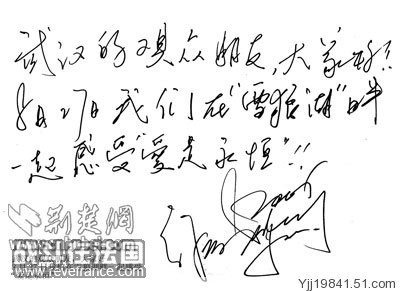 武汉的观众朋友，大家好！！
8月27日我们在"雪狼湖"中
一起感受"爱是永恒"！！
荆楚网
www.revefrance.com
Yjj19841.51.com